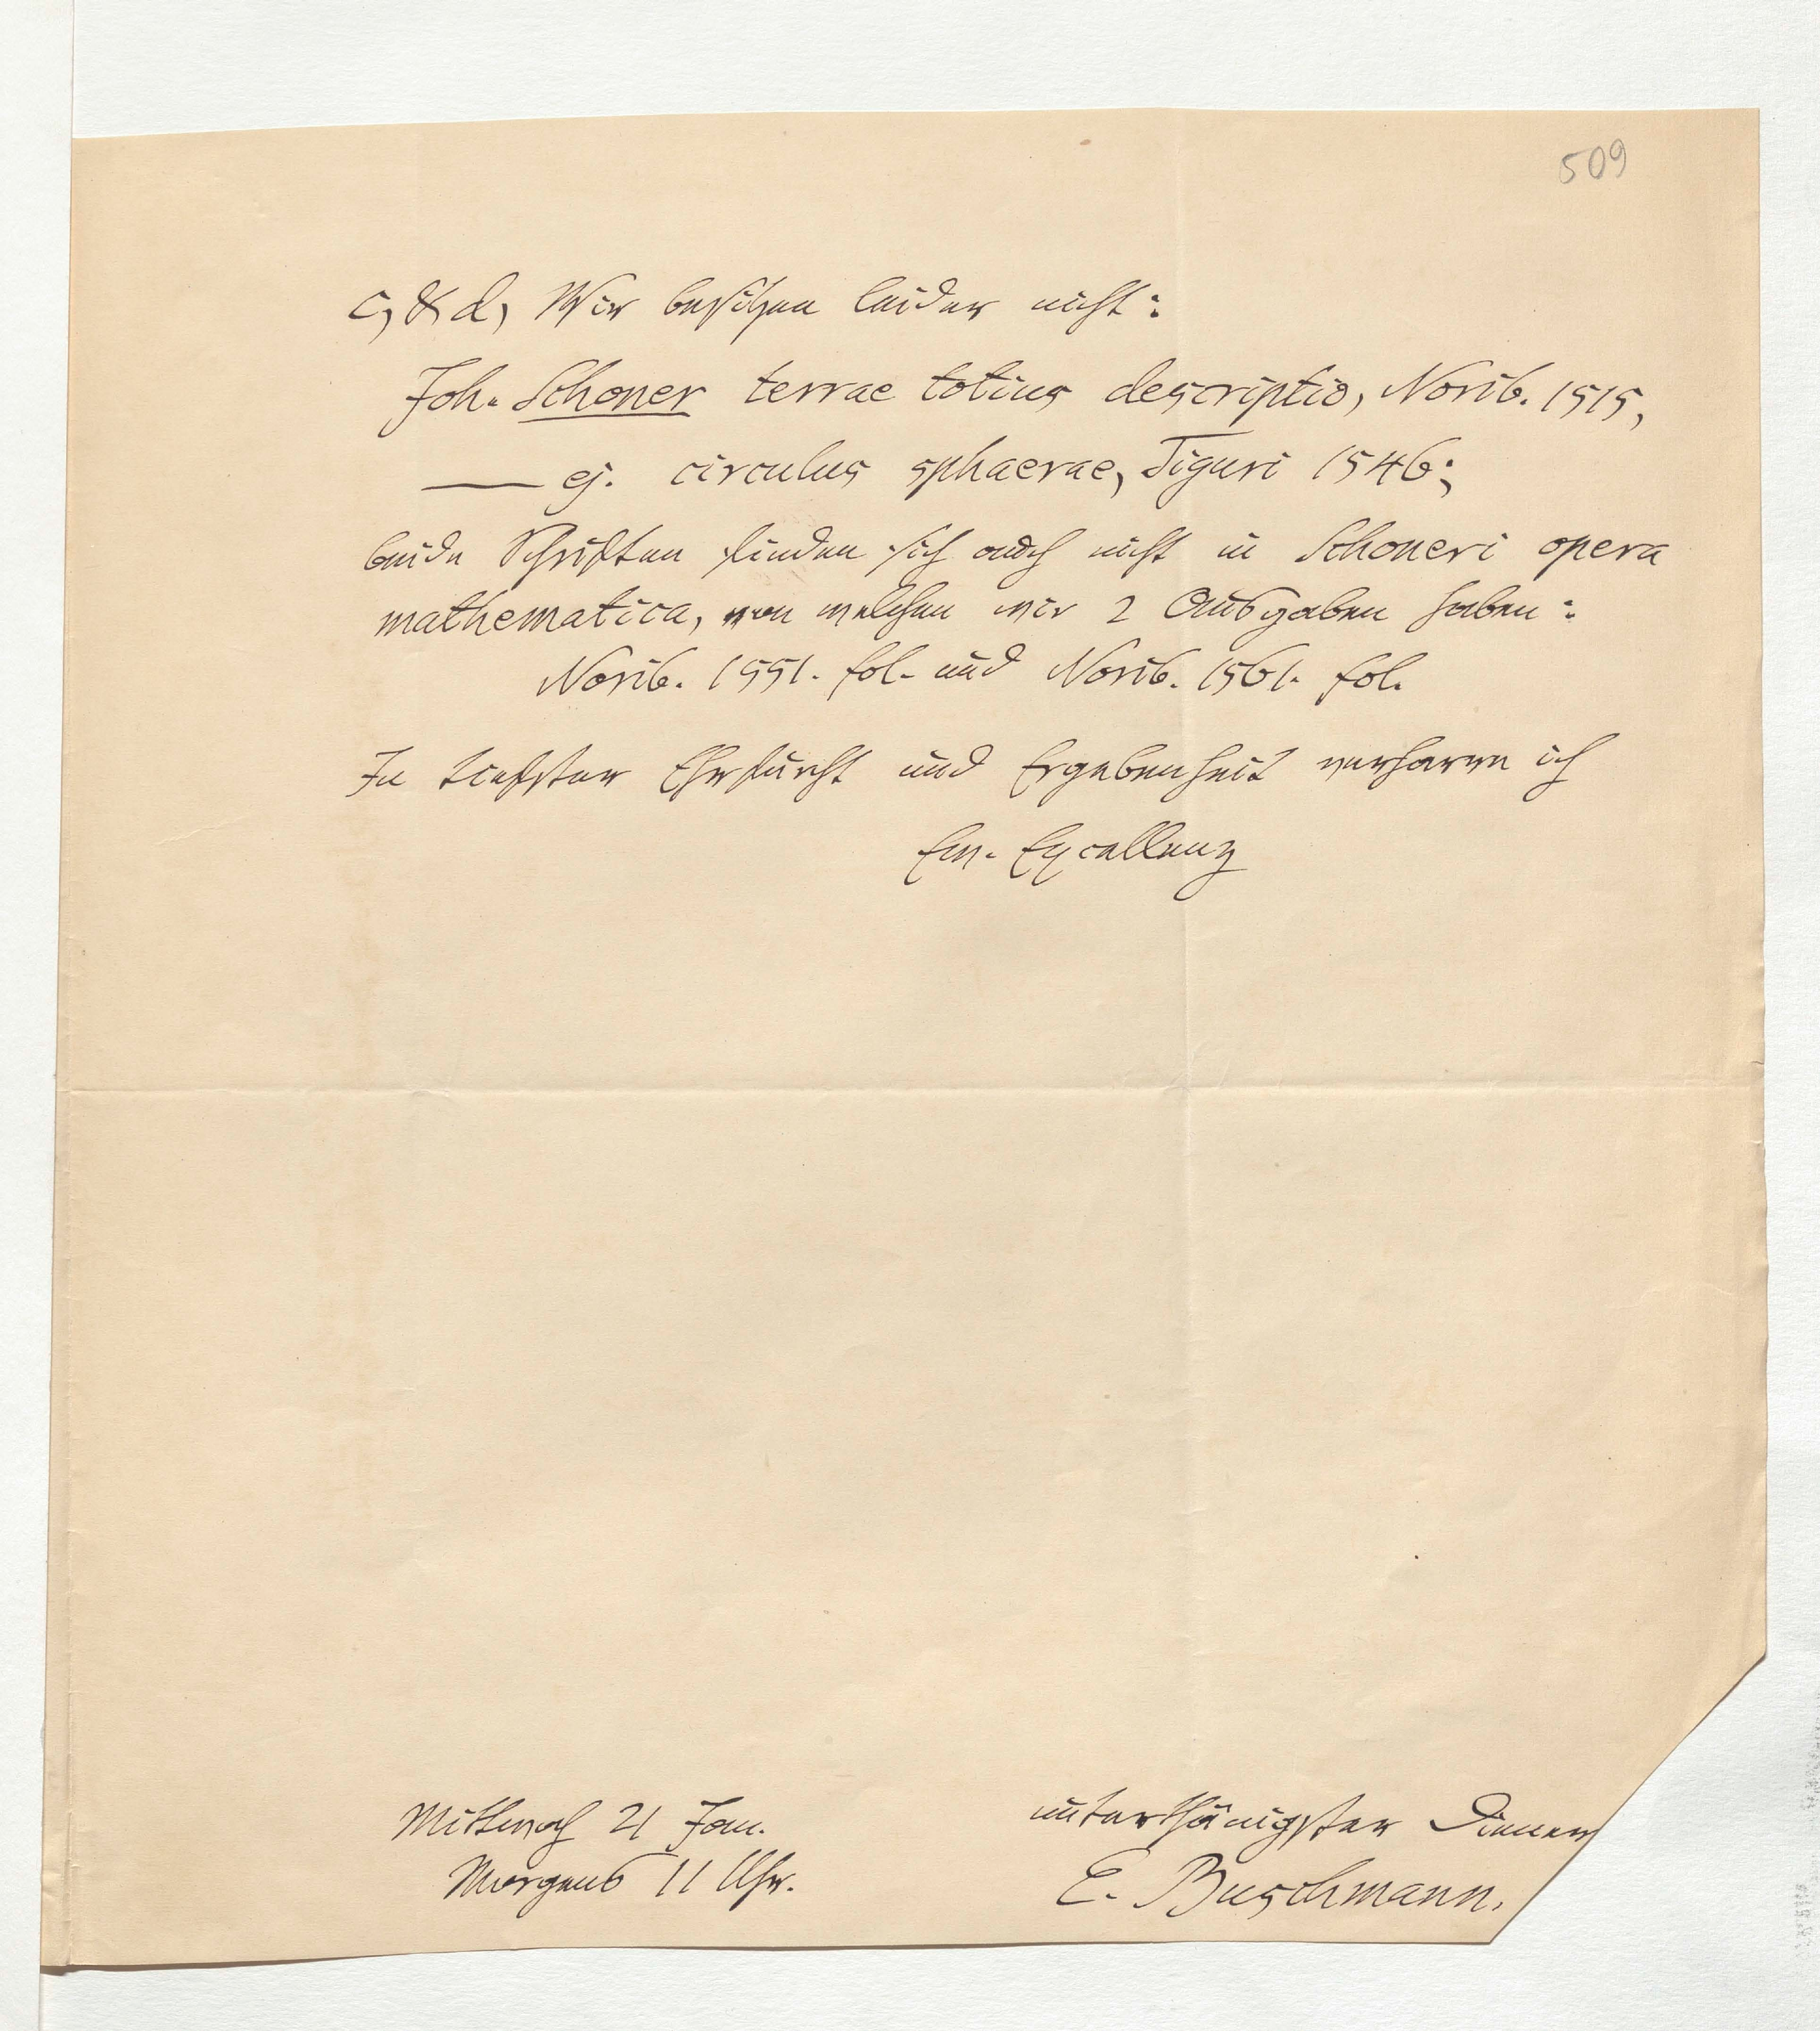 509
c, & d, Wir besitzen leider nicht:
Joh. Schoner terrae totius descriptio, Norib. 1515,
— ej. circulus sphaerae, Tiguri 1546;
beide Schriften finden sich auch nicht in Schoneri opera
mathematica, von welchen wir 2 Ausgaben haben:
Norib. 1551. fol. und Norib. 1561. fol.
In tiefster Ehrfurcht und Ergebenheit verharre ich
Ew. Excellenz
unterthänigster Diener
E. Buschmann.
Mittwoch 21 Jan.
Morgens 11 Uhr.